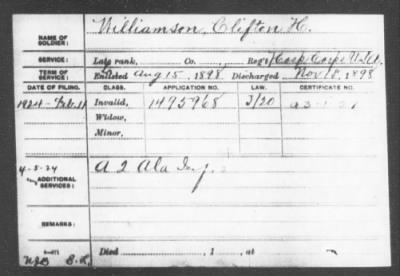 NAME OF SOLDIER: Williamson, Clifton H.
SERVICE: Late rank, Co. , Reg't Hosp. Corps U.S.A.
TERM OF SERVICE: Enlisted Aug 15, 1898. Discharged Nov 18, 1898
DATE OF FILING. CLASS. APPLICATION NO. LAW. CERTIFICATE NO.
1924-Feb-11 Invalid, 1495968 J/20
Widow,
Minor,
4-5-24 A 2 Ala Inf.
ADDITIONAL SERVICES:
REMARKS:
Died , 1 , at